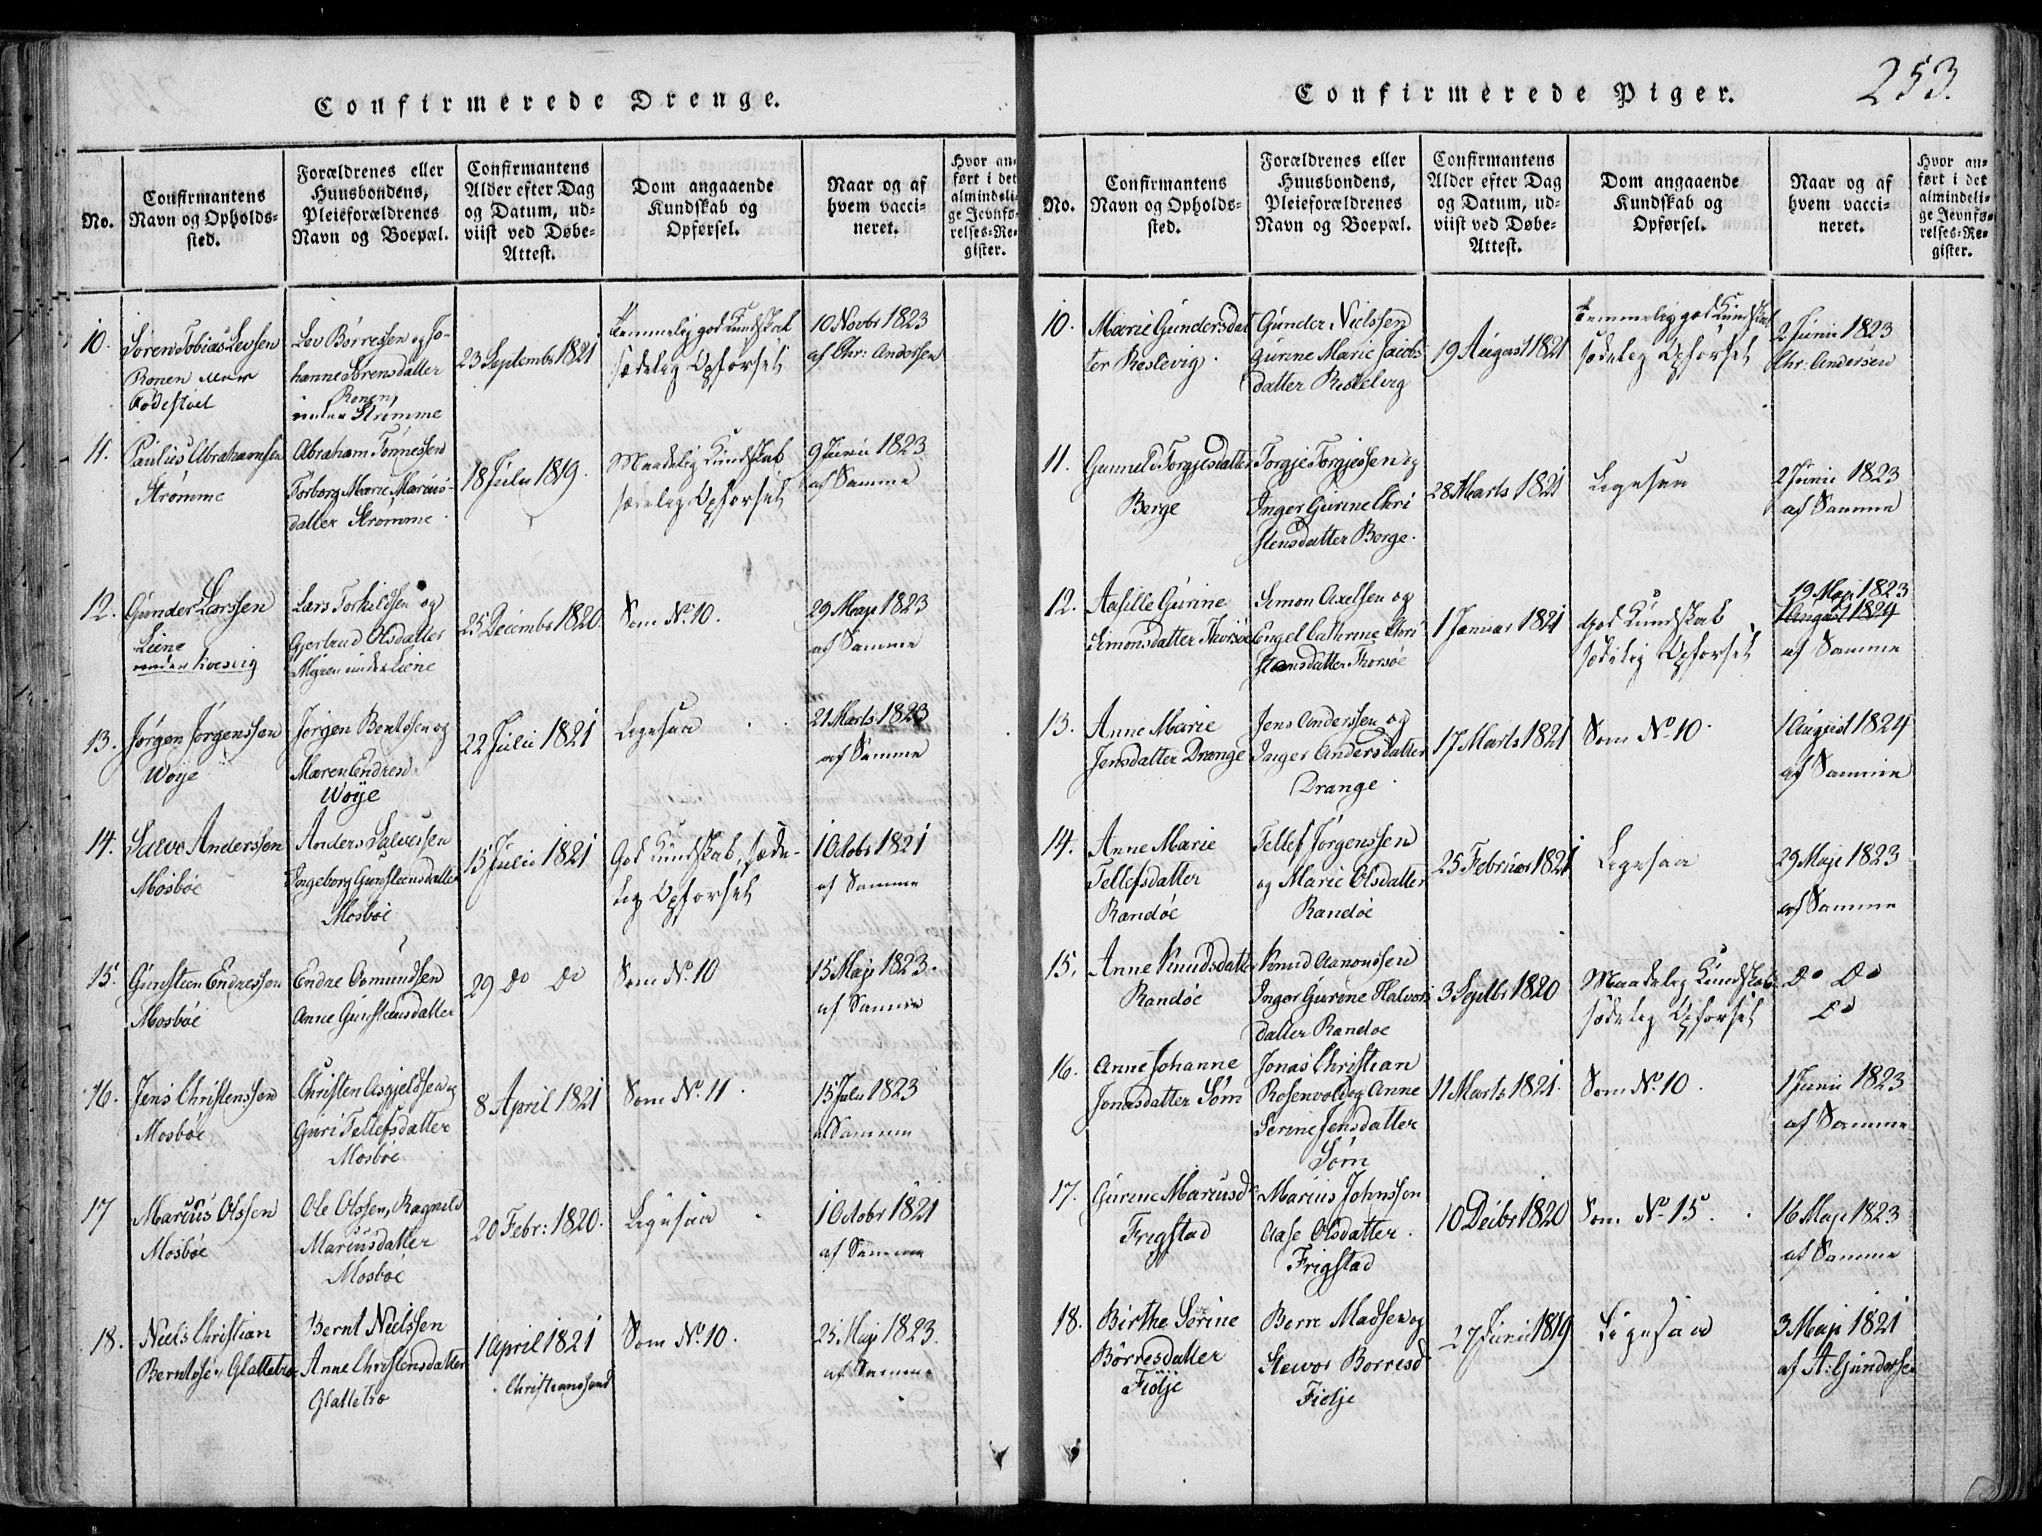 Confirmerede Drenge.
No.
Confirmantens
Navn og Opholds-
sted.
Forældrenes eller
Huusbondens,
Pleieforældrenes
Navn og Boepæl.
Confirmantens
Alder efter Dag
og Datum, ud-
viist ved Døbe-
Attest.
Dom angaaende
Kundskab og
Opførsel.
Naar og af
hvem vacci-
neret.
Hvor an-
ført i det
almindeli-
ge Jevnfø-
relses-Re-
gister.
10.
Søren Tobias Levsen
Ronen
Fødestæd
Lev Börressen og Jo-
hanne Sörensdatter
Ronen,
under Strømme
23 Septembr 1821
Temmelig god Kundskab
sædelig Opførsel
10 Novbr 1823
af Chr: Andersen
11.
Paulus Abrahamsen
Strømme
Abraham Tönnessen
Torborg Marie Marius-
datter Strømme
18 Julii 1819.
Maadelig Kundskab
sædelig Opførsel
9 Junii 1823
af Samme
12.
Gunder Larssen
Liene
under Kvevig
Lars Torkildsen og
Gjertrud Olsdatter
Myren under Liene
25 Decembr 1820.
Som No. 10.
29 Maji 1823
af Samme
13.
Jørgen Jørgenssen
Woye
Jörgen Bentssen og
Maren Endresd.
Woye
22 Julii 1821
Ligesaa
21 Marts 1823
af Samme
14.
Salve Anderssen
Mosböe
Anders Salvessen
Ingeborg Gunsteensdatter
Mosböe
15 Julii 1821
God Kundskab, sæde-
lig Opførsel
1 Octobr 1821
af Samme
15.
Gunsteen Endressen
Mosböe
Endre Osmundsen
Anne Gunsteensdatter
29 Do Do
Som No. 10
15 Maji 1823.
af Samme
16.
Jens Christenssen
Mosböe
Christen Asgjeldsen og
Guri Tellefsdatter
Mosböe
8 April 1821
Som No. 11
15 Julii 1823
af Samme
17
Marius Olssen
Mosböe
Ole Olssen, Ragnild
Mariusdatter
Mosböe
20 Febr: 1820.
Ligesaa
1 Octobr 1821
af Samme
18.
Niels Christian
Berntsse: Glattetræ
Bernt Nielssen
Anne Christensdatter
Glattetræ
1 April 1821
Christianssand
Som No. 10.
25. Maji 1823.
af Samme
Confirmerede Piger.
253.
No.
Confirmantens
Navn og Opholds-
sted.
Forældrenes eller
Huusbondens,
Pleieforældrenes
Navn og Boepæl.
Confirmantens
Alder efter Dag
og Datum, ud-
viist ved Døbe-
Attest.
Dom angaaende
Kundskab og
Opførsel.
Naar og af
hvem vacci-
neret.
Hvor an-
ført i det
almindeli-
ge Jevnfø-
relses-Re-
gister.
10.
Marie Gundersdat
ter Reslevig.
Gunder Nielssen
Gurine Marie Jacobs
datter Reslevig
19 August 1821
Temmelig god Kundskab
sædelig Opførsel
2 Junii 1823
Chr: Andersen
11.
Gunneld Torgjesdatter
Berge
Torgje Torgjessen og
Inger Gurine Chri
stensdatter Berge.
28 Marts 1821
Ligesaa
2 Junii 1823
af Samme
12.
Aasille Gurine
Simonsdatter Thorsöe
Simon Axelsen og
Engel Cathrine Chri
stensdatter Thorsöe
1 Januar 1821
God Kundskab
sædelig Opførsel
19 Maji 1823
1 August 1824
af Samme
13.
Anne Marie
Jensdatter Drange
Jens Anderssen og
Inger Andersdatter
Drange
17 Marts 1821
Som No. 10.
1 August 1824
af Samme
14.
Anne Marie
Tellefsdatter
Randöe
Tellef Jörgenssen
og Marie Olsdatter
Randöe
25 Februar 1821
Ligesaa
29 Maji 1823
af Samme
15.
Anne Knudsdatter
Randöe
Knud Aanondsen
Inger Gurine Halvors
datter Randoe
3 Septbr 1820
Maadelig Kundskab
sædelig Opførsel
Do Do
Do
16.
Anne Johanne
Jonasdatter Söm
Jonas Christian
Rosenvold og Anne
Serine Jensdatter
Söm
11 Marts 1821.
Som No. 10.
1 Junii 1823
af Samme
17.
Gurine Mariusd
Frigstad
Marius Johnssen
Aase Olsdatter.
Frigstad
10 Decbr 1820
Som No. 15.
16 Maji 1823
af Samme
18.
Birthe Serine
Börresdatter
Fidje
Berre Madsen og
Stewor Borresd
Fidje
27 Junii 1819
Ligesaa
3 Maji 1821
af A: Gundersen